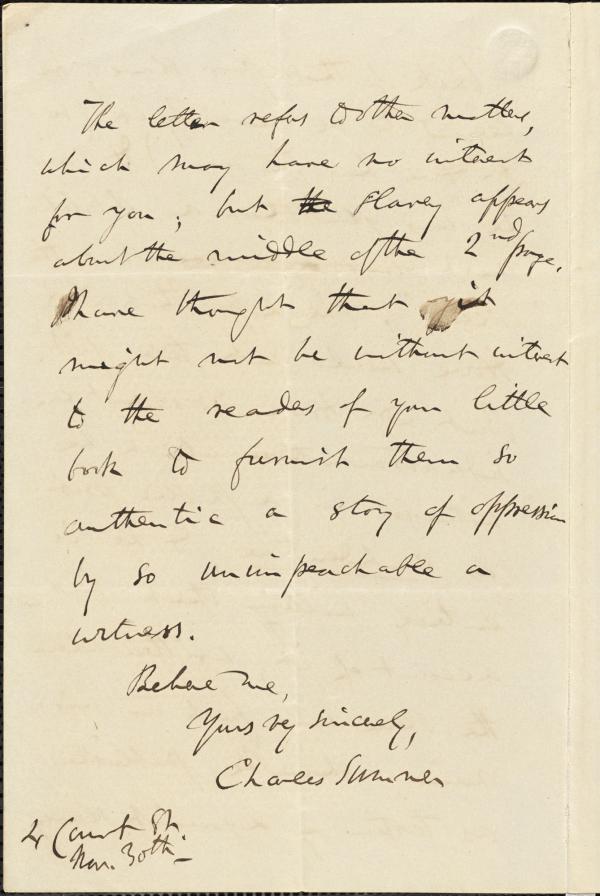 The letter refers to other matters,
which may have no interest
for you; but the slavery appears
about the middle of the 2nd page.
I have thought that it
might not be without interest
to the readers of your little
book to furnish them so
authentic a story of oppression
by so unimpeachable a
witness.
Believe me,
Yours very sincerely,
Charles Sumner
4 Court St.
Nov. 30th—